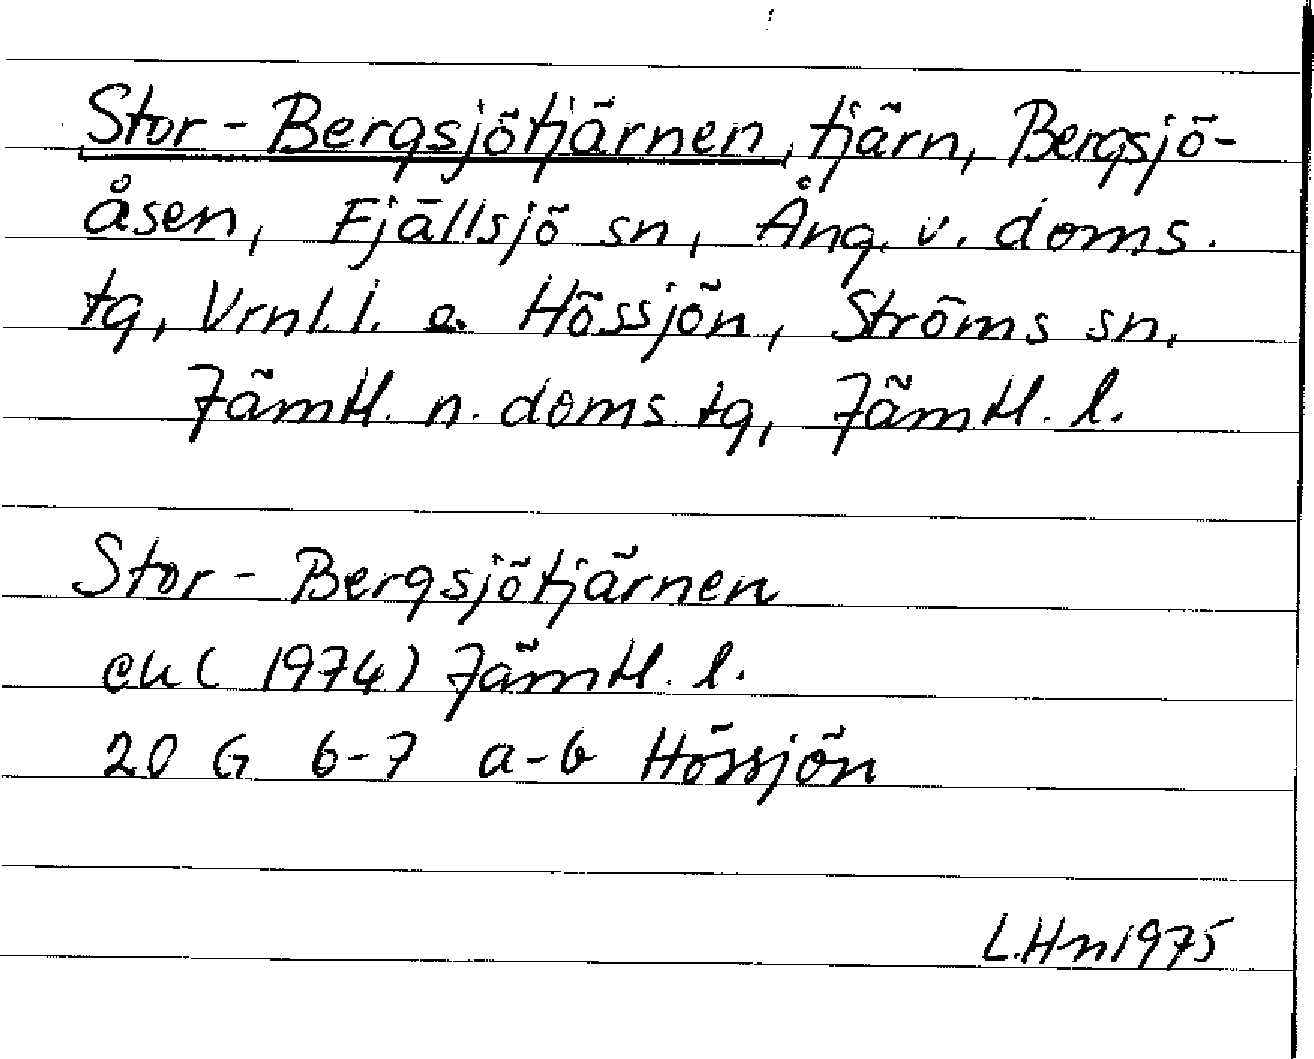 Stor-Bergsjötjärnen, tjärn, Bergsjö-
åsen, Fjällsjö sn, Ång. v. doms.
tg, Vrnl. l. o. Hössjön, Ströms sn,
Jämtl. n. doms. tg, Jämtl. l.
Stor-Bergsjötjärnen
ek (1974) Jämtl. l.
20 G 6-7 a-b Hössjön
L.Hn 1975